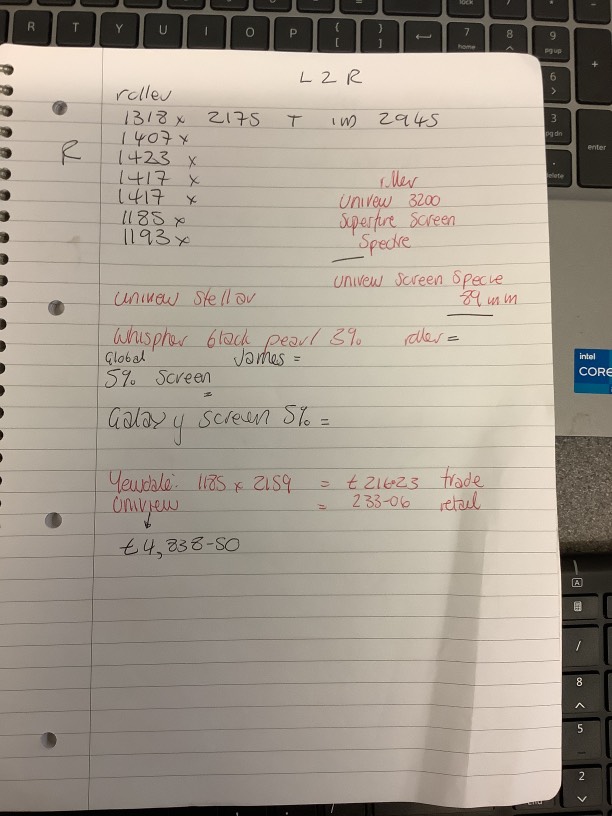 L2R
roller
1318 x 2175 T im 2945
1407 x
R
1423 x
1417 x
1417 x
1185 x
1193 x
roller
Univew 3200
Superfire Screen
Spectre
Univew Screen Specre
89 mm
univew Stellar
Whispher black pearl 3% roller =
Global James =
5% Screen
=
Galaxy screen 5% =
Yewdale: 1185 x 2159 = £216-23 trade
Uniview = 233-06 retail
£4,838-50
R T Y U I O P { [ } ]
7 home 8 9 pg up +
6 3 pg dn enter
. delete
intel
CORE
A
/
8
5
2